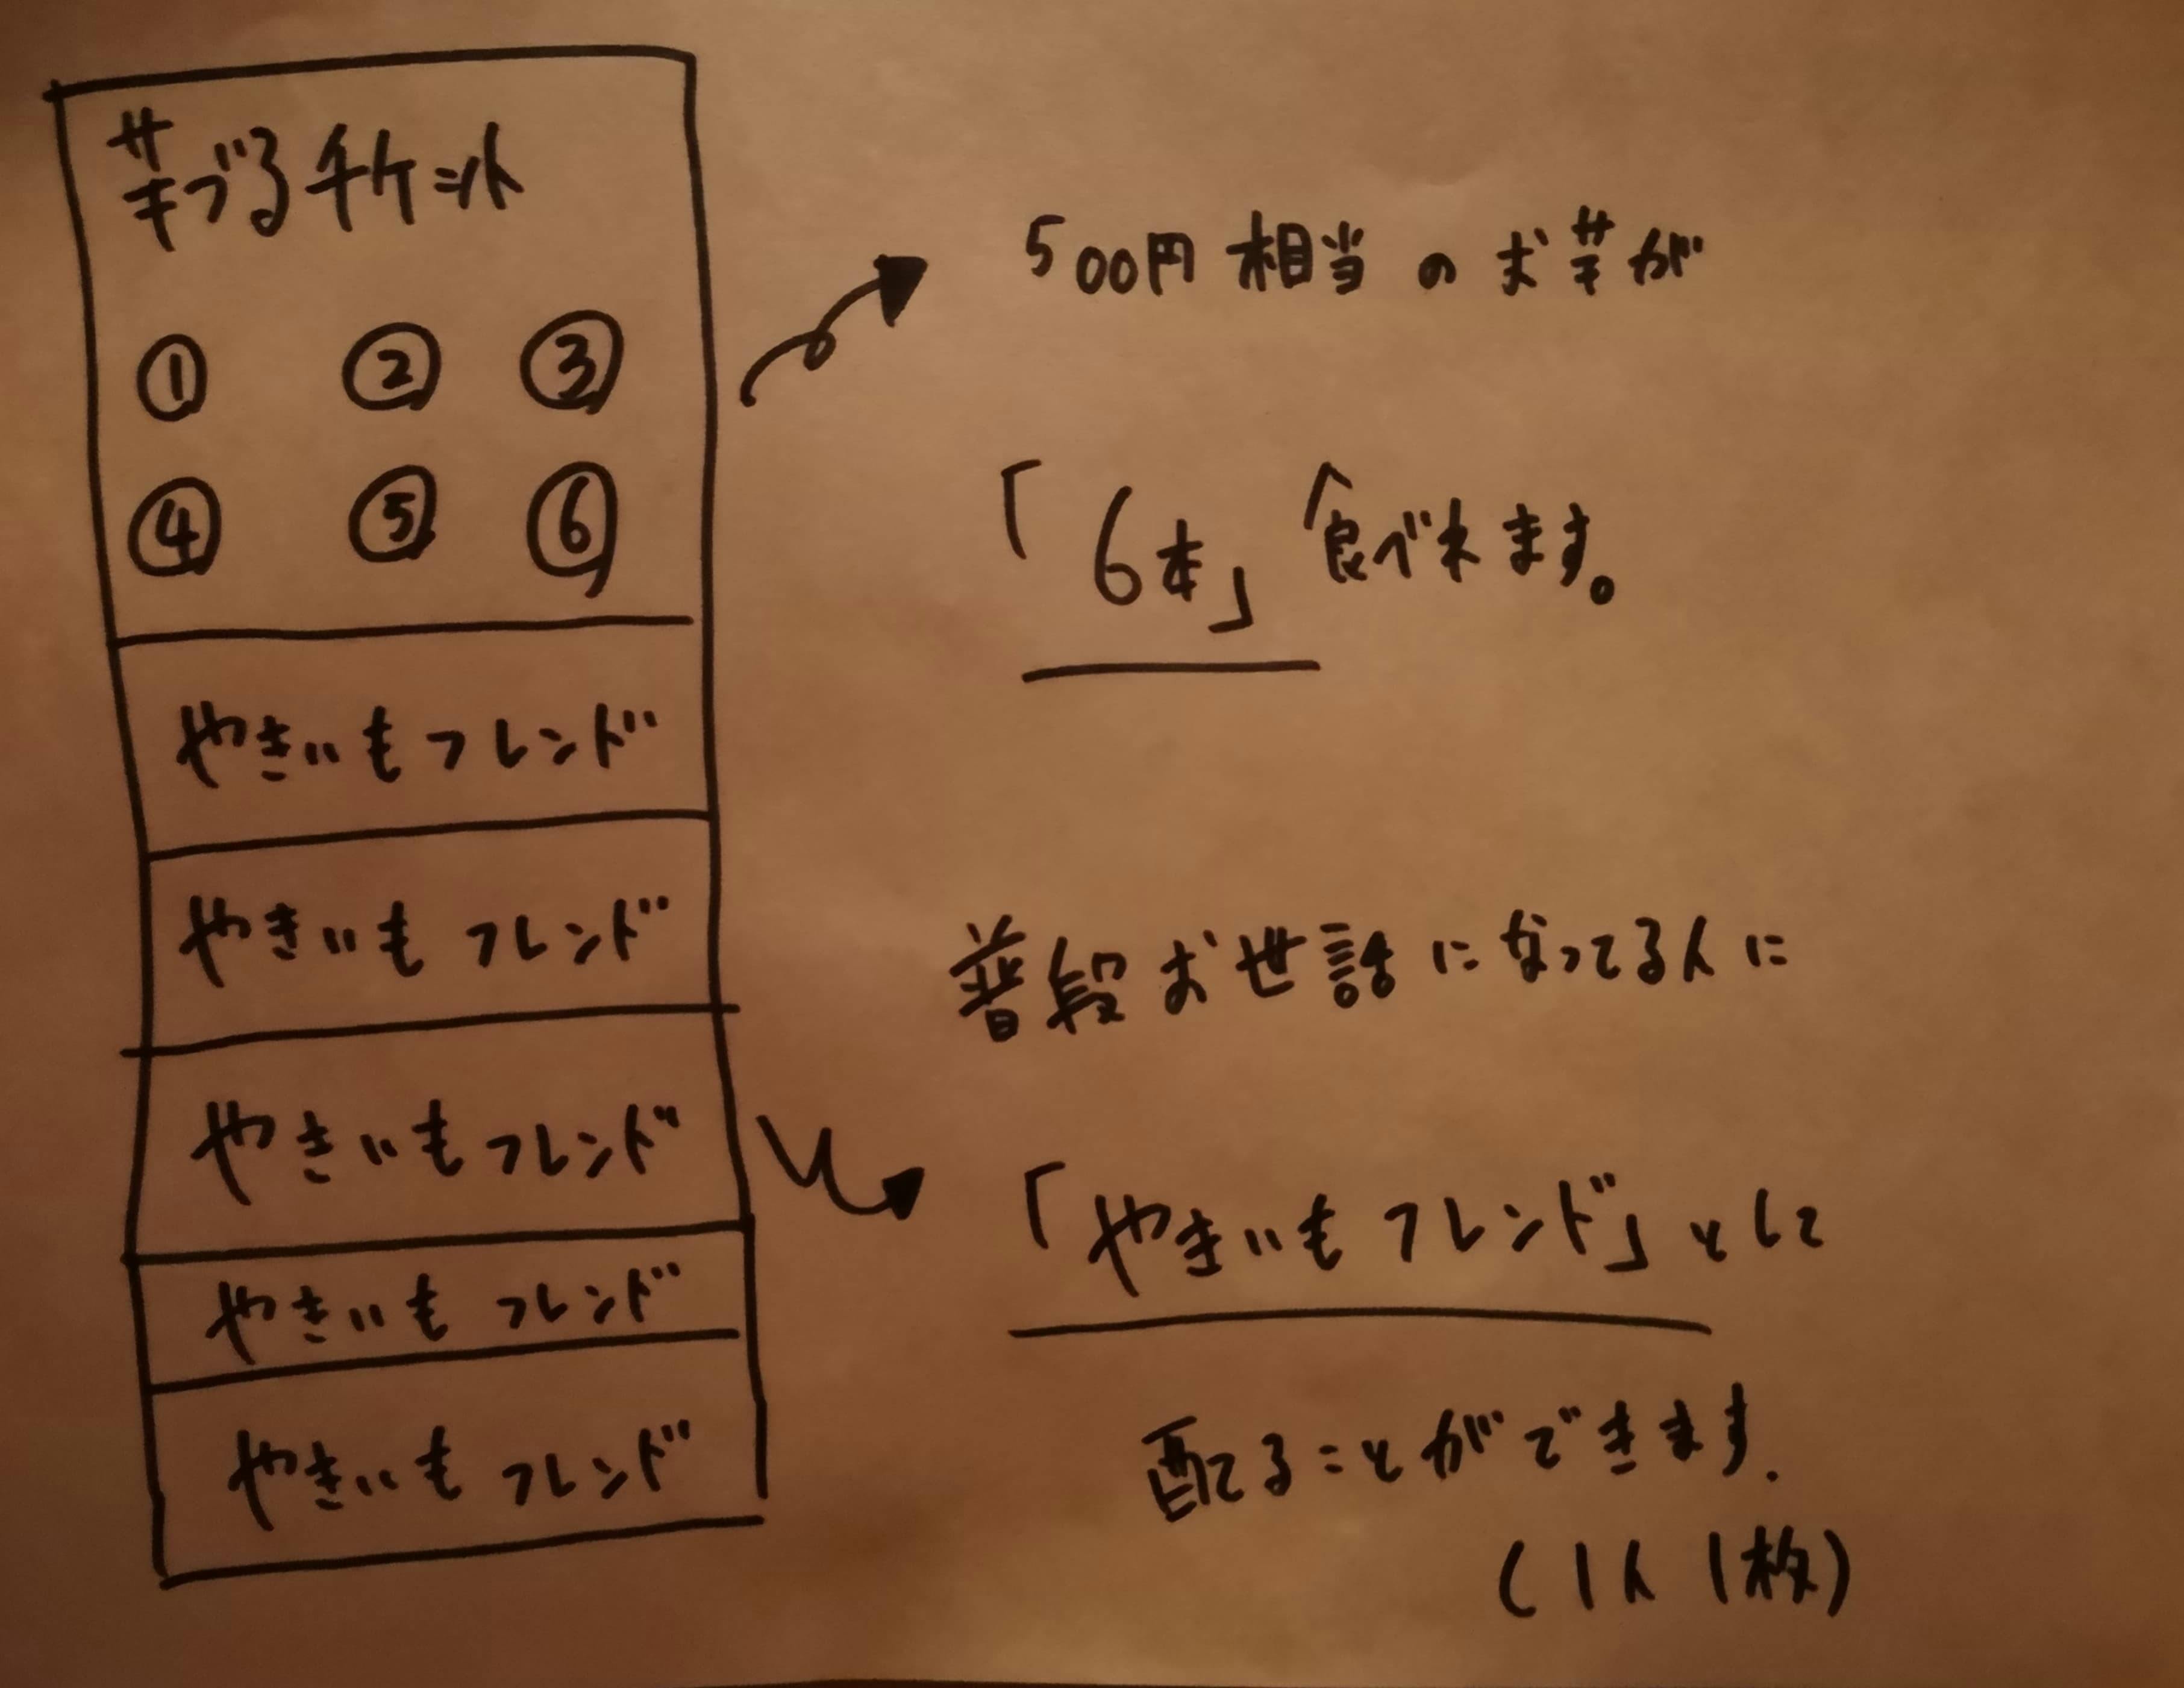 芋づるチケット
① ② ③
④ ⑤ ⑥
やきいもフレンド
やきいもフレンド
やきいもフレンド
やきいもフレンド
やきいもフレンド
500円相当のお芋が
「6本」食べれます。
普段お世話になってる人に
「やきいもフレンド」として
配てることができます.
(1人1枚)